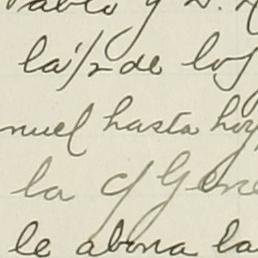 Pablo y D.
la 1/2 de los
nuel hasta hoy,
la c/ Gene
le abona la